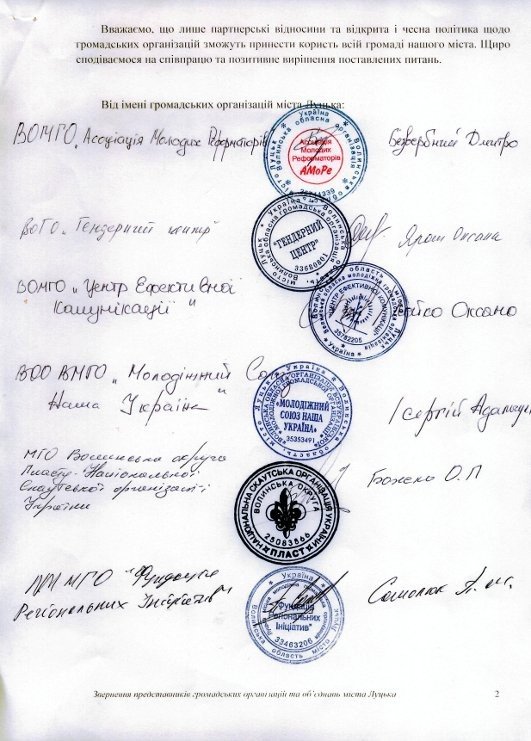 Вважаємо, що лише партнерські відносини та відкрита і чесна політика щодо
громадських організацій зможуть принести користь всій громаді нашого міста. Щиро
сподіваємося на співпрацю та позитивне вирішення поставлених питань.
Від імені громадських організацій міста Луцька:
ВОМГО „Асоціація Молодих Реформаторів" Безвербний Дмитро
Україна
Асоціація
Молодих
Реформаторів
АМоРе
ВОГО „Гендерний центр" Ярош Оксана
"ГЕНДЕРНИЙ
ЦЕНТР"
33680801
ВОМГО „Центр Ефективної
Комунікації" Оксана
35182205
Україна
ВОО ВМГО „Молодіжний Союз
Наша Україна" Сергій
«МОЛОДІЖНИЙ
СОЮЗ НАША
УКРАЇНА»
35353491
МГО Волинська округа
Пласту - Національної
Скаутської організації
України Божено О.П
НАЦІОНАЛЬНА СКАУТСЬКА ОРГАНІЗАЦІЯ УКРАЇНИ
ВОЛИНСЬКА ОКРУГА
25083866
ПЛАСТ
МГО "Фундація
Регіональних Ініціатив"
Україна
"Фундація
Регіональних
Ініціатив"
33463206
Звернення представників громадських організацій та об'єднань міста Луцька 2